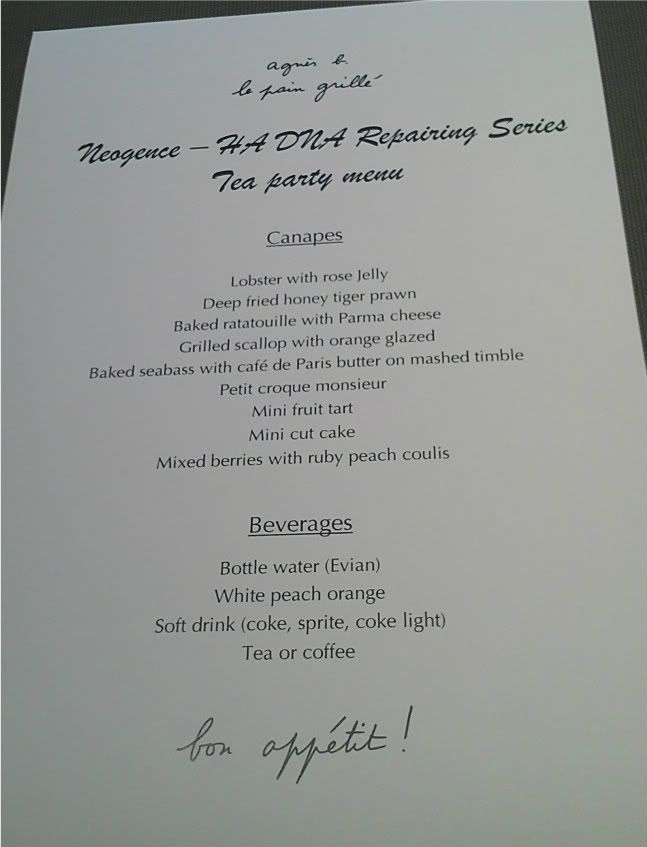 agnès b.
le pain grillé
Neogence – HA DNA Repairing Series
Tea party menu
Canapes
Lobster with rose Jelly
Deep fried honey tiger prawn
Baked ratatouille with Parma cheese
Grilled scallop with orange glazed
Baked seabass with café de Paris butter on mashed timble
Petit croque monsieur
Mini fruit tart
Mini cut cake
Mixed berries with ruby peach coulis
Beverages
Bottle water (Evian)
White peach orange
Soft drink (coke, sprite, coke light)
Tea or coffee
bon appétit !